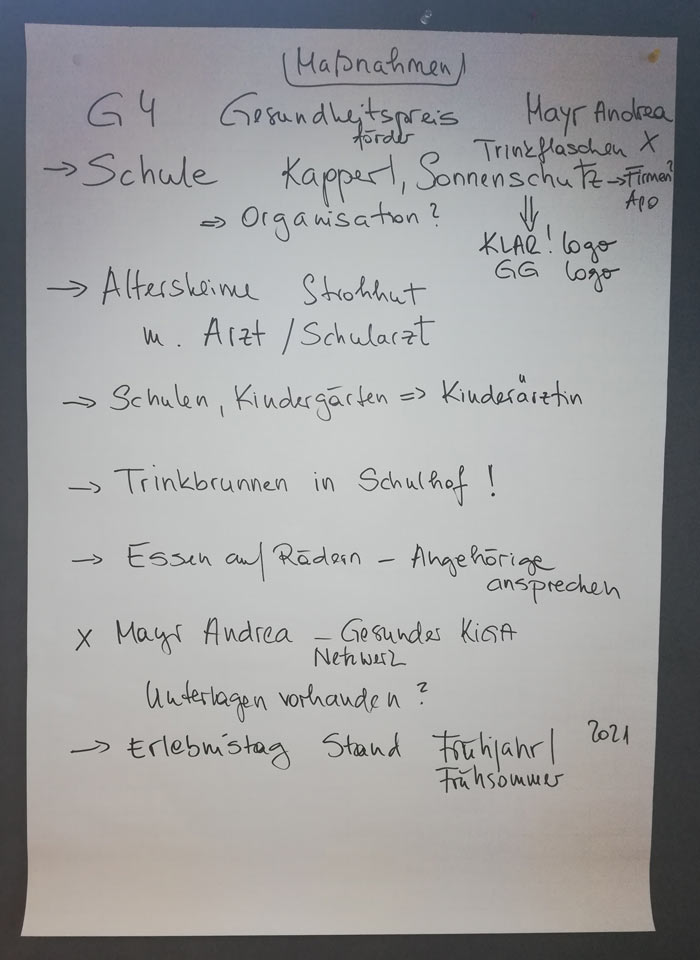 (Maßnahmen)
G4 Gesundheitspreis Mayr Andrea
förder
Trinkflaschen X
→ Schule Kapperl, Sonnenschutz → Firmen?
Apo
⇒ Organisation? ⇓
KLAR! logo
GG logo
→ Altersheime Strohhut
m. Arzt / Schularzt
→ Schulen, Kindergärten => Kinderärztin
→ Trinkbrunnen in Schulhof!
→ Essen auf Rädern – Angehörige
ansprechen
x Mayr Andrea – Gesundes KiGA
Netzwerk
Unterlagen vorhanden?
→ Erlebnistag Stand Frühjahr/ 2021
Frühsommer